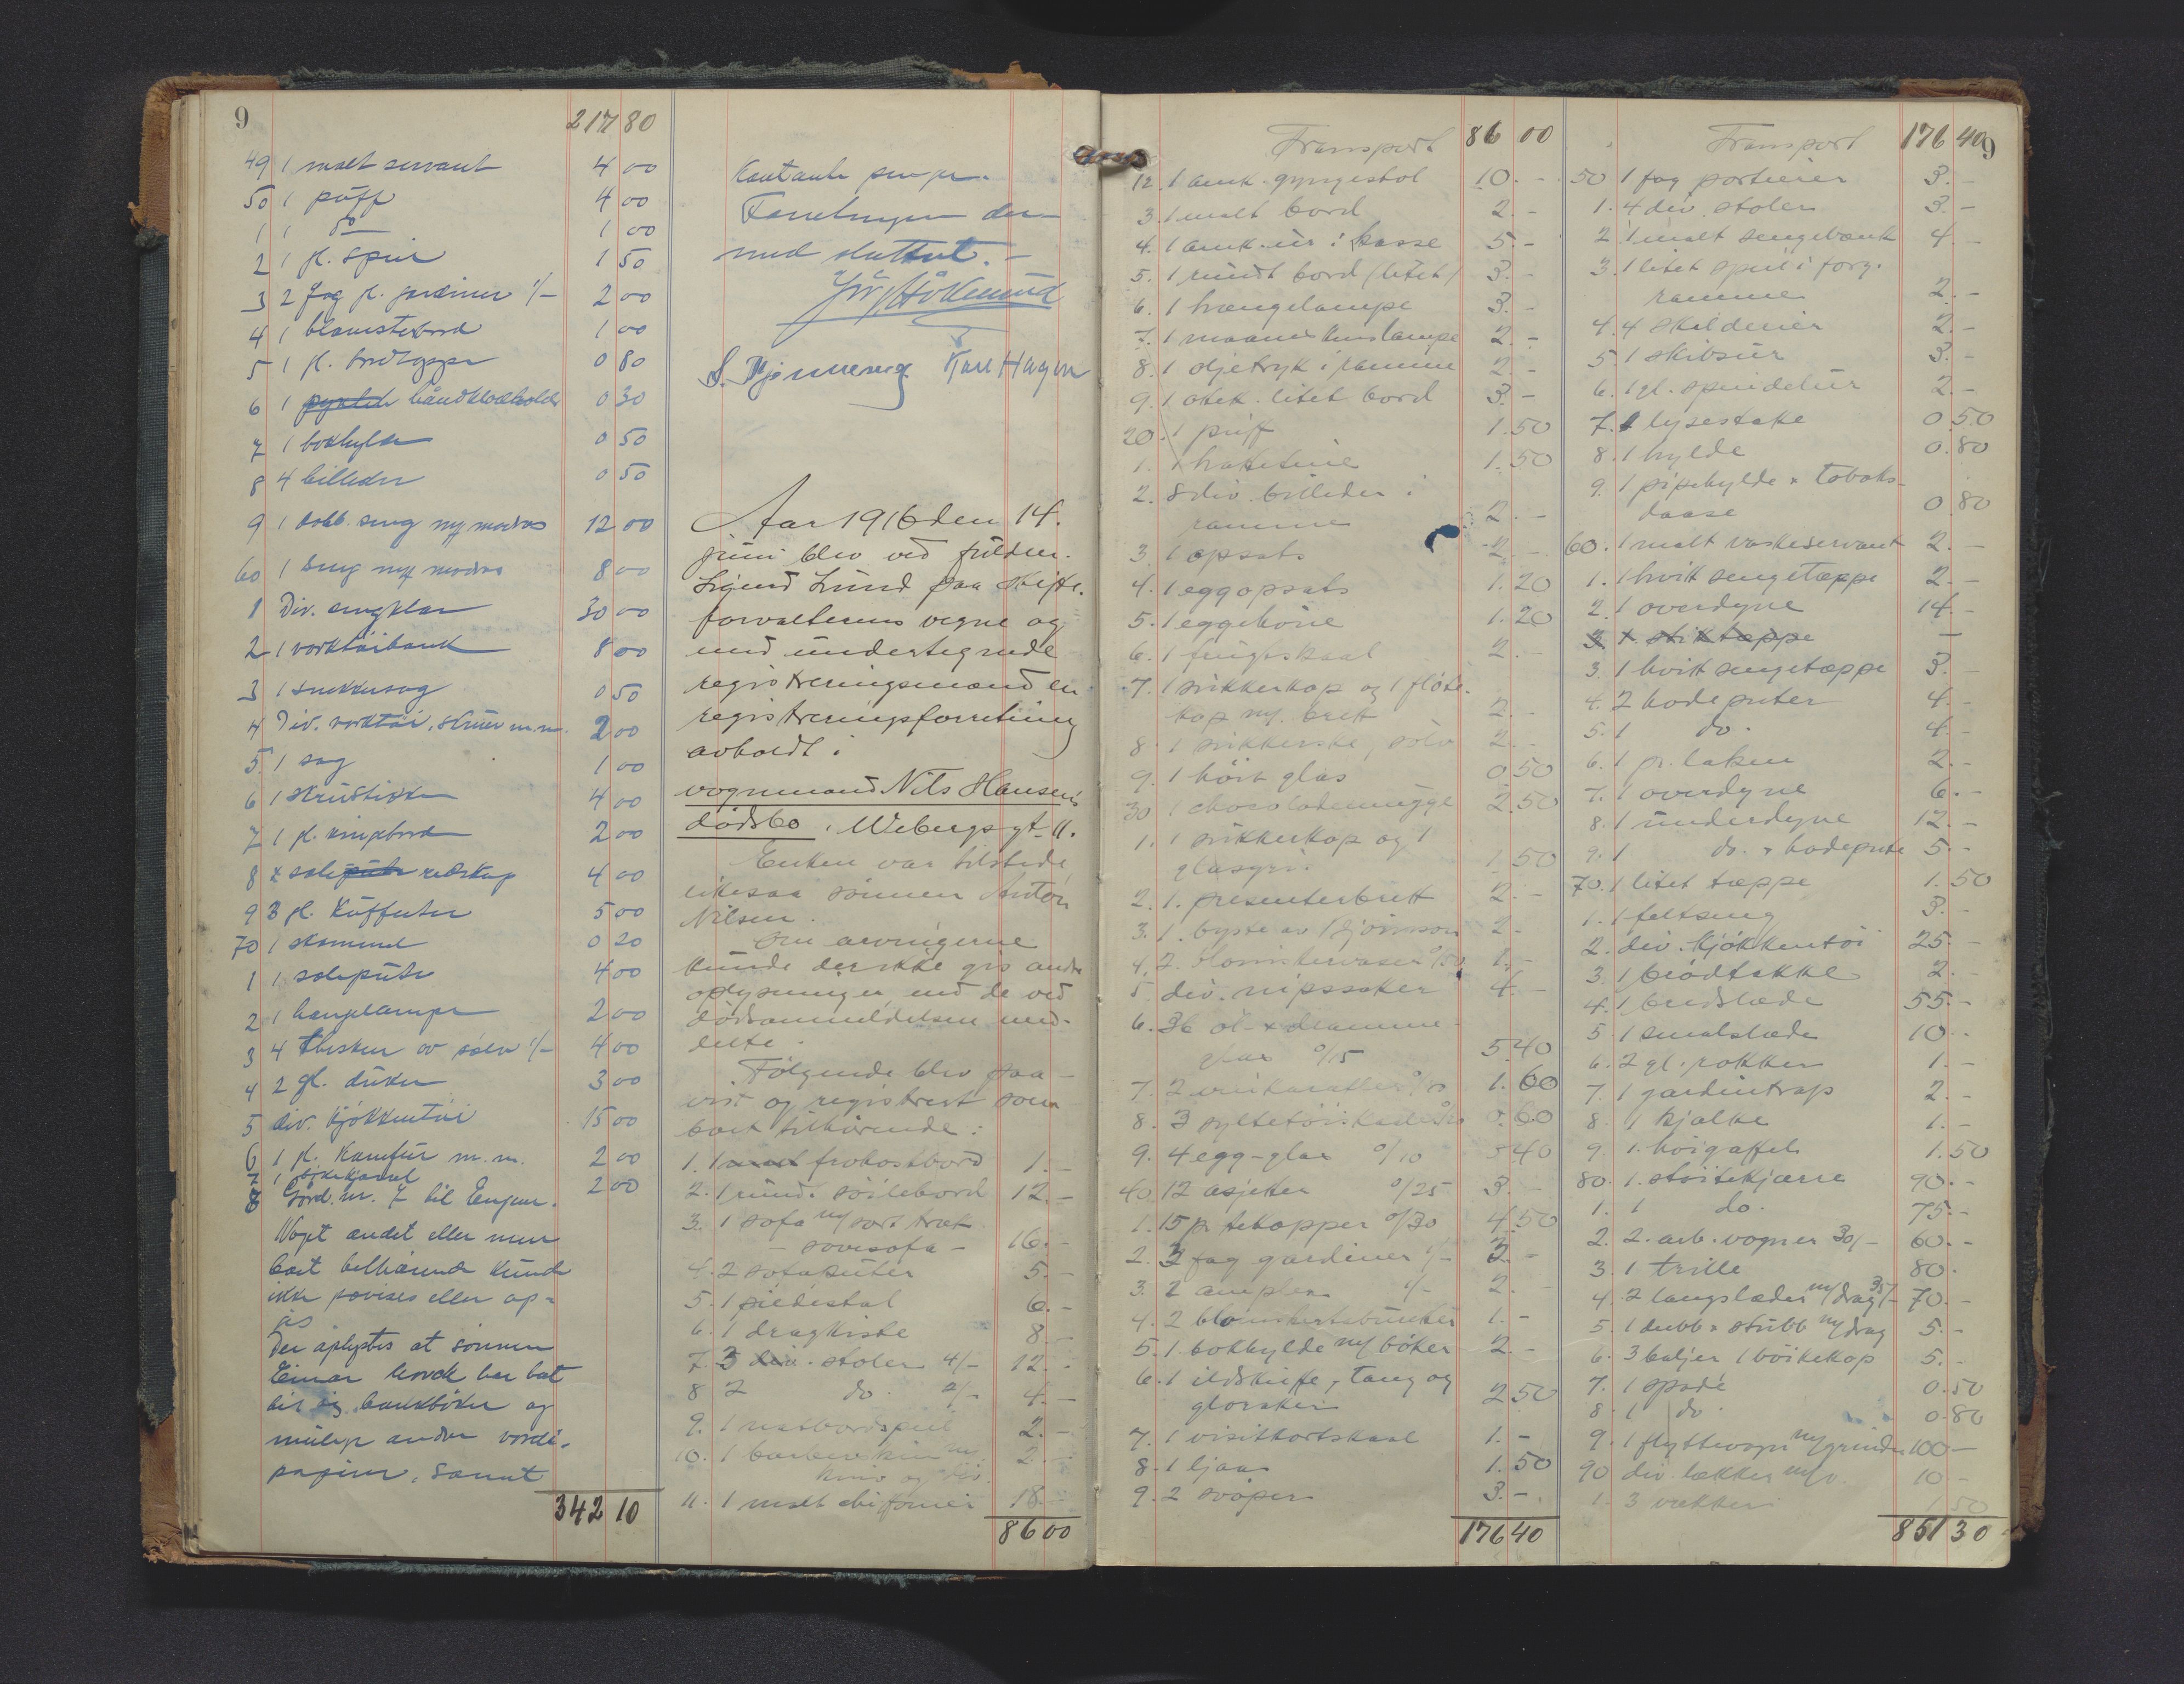 9
217 80
49 1 malt servant 4 00
50 1 puff 4 00
1 1 do 1 00
2 1 gl. speil 1 50
3 2 fag gl. gardiner 1/- 2 00
4 1 blomsterbord 1 00
5 1 gl. bordteppe 0 80
6 1 håndklædeholder 0 30
7 1 bokhylde 0 50
8 4 billeder 0 50
9 1 dobb. seng m/ madras 12 00
60 1 seng m/ madras 8 00
1 Div. sengklær 30 00
2 1 verktöibænk 8 00
3 1 snekkersag 0 50
4 Div. verktöi, skruer m.m. 2 00
5 1 sag 1 00
6 1 skrustikke 4 00
7 1 gl. kingebord 2 00
8 redskap 4 00
9 3 gl. kufferter 5 00
70 1 skammel 0 20
1 1 solepute 4 00
2 1 hængelampe 2 00
3 4 theskeer av sølv 1/- 4 00
4 2 gl. duker 3 00
5 div. kjökkentöi 15 00
6 1 gl. kamfur m.m. 2 00
7 1 kjel 2 00
8 Gård. nr. 7 til
Noget andet eller mere
boet tilhörende kunde
ikke paavises eller op-
gis
Der oplystes at sönnen
Einar har tat
til sig bankböker og
mulige andre værdi-
papirer, samt
342 10
kontante penger.
Forretningen der-
med sluttet. -
S. Karl Hagen
Aar 1916 den 14.
juni blev ved fuldm.
Sigurd Lund paa skifte-
forvalterens vegne og
med undertegnede
registreringsmænd en
registreringsforretning
avholdt i
vognmand Nils Hansens
dödsbo, Webergsgt. 11.
Enken var tilstede,
likesaa sönnen Anton
Nilsen.
Om arvingerne
kunde der ikke gis andre
oplysninger end de ved
dödsanmeldelsen med-
delte.
Fölgende blev paa-
vist og registrert som
boet tilhörende:
1. 1 frokostbord 1. -
2. 1 rund. söilebord 12. -
3. 1 sofa m/ sort træk
- sovesofa - 16. -
4. 2 sofaputer 5. -
5. 1 piedestal 6. -
6. 1 dragkiste 8. -
7. 3 stoler 4/- 12. -
8 2 do. 2/- 4. -
9. 1 natbordspeil 2. -
10. 1 m/ 2. -
kniv og
11. 1 malt chifonier 18. -
86 00
Transport 86 00
12. 1 amk. gyngestol 10. -
3. 1 malt bord 2. -
4. 1 amk. ur i kasse 5. -
5. 1 rundt bord (litet) 3. -
6. 1 hængelampe 3. -
7. 1 maaneskinslampe 2. -
8. 1 oljetryk i ramme 2. -
9. 1 litet bord 3. -
20. 1 puff 1.50
1. 1 1.50
2. 8 div. billeder i
ramme 2. -
3. 1 opsats 2. -
4. 1 eggopsats 1.20
5. 1 eggehöne 1.20
6. 1 frugtskaal 2. -
7. 1 sukkerkop og 1 flöte-
kop m/ brett 2. -
8. 1 sukkerske, sölv 2. -
9. 1 höit glas 0.50
30 1 chocolademugge 2.50
1. 1 sukkerkop og 1
1.50
2. 1. presenterbrett 2. -
3. 1. byste av Björnson 2. -
4. 2. blomstervaser 0/50 1. -
5. div. nipssaker 4. -
6. 36 öl- & dramme-
glas 0/15 5.40
7. 2 vinkarafler 0/80 1.60
8. 3 syltetöiskaaler 0.60
9. 4 egg-glas 0/10 0.40
40. 12 asjetter 0/25 3. -
1. 15 p. tekopper 0/30 4.50
2. 3 fag gardiner 1/- 3. -
3. 2 ampler 1/- 2. -
4. 2 1. -
5. 1. bokhylde m/ böker 2. -
6. 1 ildskuffe, tang og
gloraker 2.50
7. 1 visitkortskaal 1. -
8. 1 ljaa 1.50
9. 2 svöper 3. -
176 40
Transport 176 40
9
50 1 fag portierer 3. -
1. 4 div. stoler 3. -
2. 1 malt sengebænk 4. -
3. 1 litet speil i forg.
ramme 2. -
4. 4 skilderier 2. -
5. 1 skibsur 3. -
6. 1 gl. speidelur 2. -
7. 1 lysestake 0.50
8. 1 hylde 0.80
9. 1 pipehylde & tobaks-
daase 0.80
60. 1 malt vaskeservant 2. -
1. 1 hvitt sengetæppe 2. -
2. 1 overdyne 14. -
3. 1. stiktæppe -
3. 1 hvitt sengetæppe 3. -
4. 2 hodeputer 4. -
5. 1 do. 4. -
6. 1 pr. laken 2. -
7. 1 overdyne 6. -
8. 1 underdyne 12. -
9. 1 do. & hodepute 5. -
70. 1 litet tæppe 1.50
1. 1 feltseng 3. -
2. div. kjökkentöi 25. -
3. 1 brödtakke 2. -
4. 1 bredslæde 55. -
5. 1 smalslæde 10. -
6. 2 gl. rokker 1. -
7. 1 gardintrap 2. -
8. 1 kjælke 1. -
9. 1. höigaffel 1.50
80. 1. störtekjærre 90. -
1. 1 do. 75. -
2. 2. arb. vogner 30/- 60. -
3. 1 trille 80.
4. 2 langslæder m/ drag 35/- 70. -
5. 1 dubb. stubb m/ drag 5. -
6. 3 baljer 1 böikekop 5. -
7. 1 spade 0.50
8. 1 do. 0.80
9. 1 flyttevogn m/ grinder 100 -
90 div. lækker 10 -
1. 3 1.50
851 30